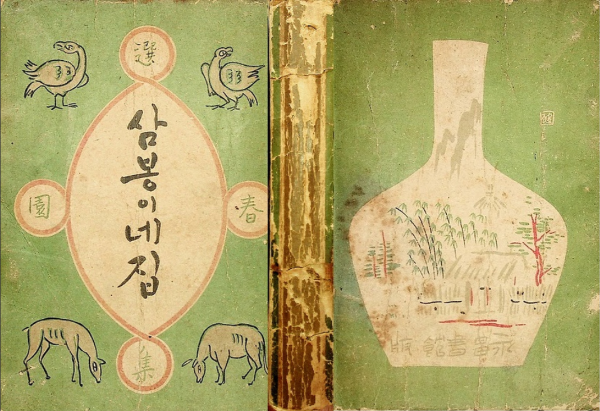 選
春
園
集
삼봉이네집
永昌書館版